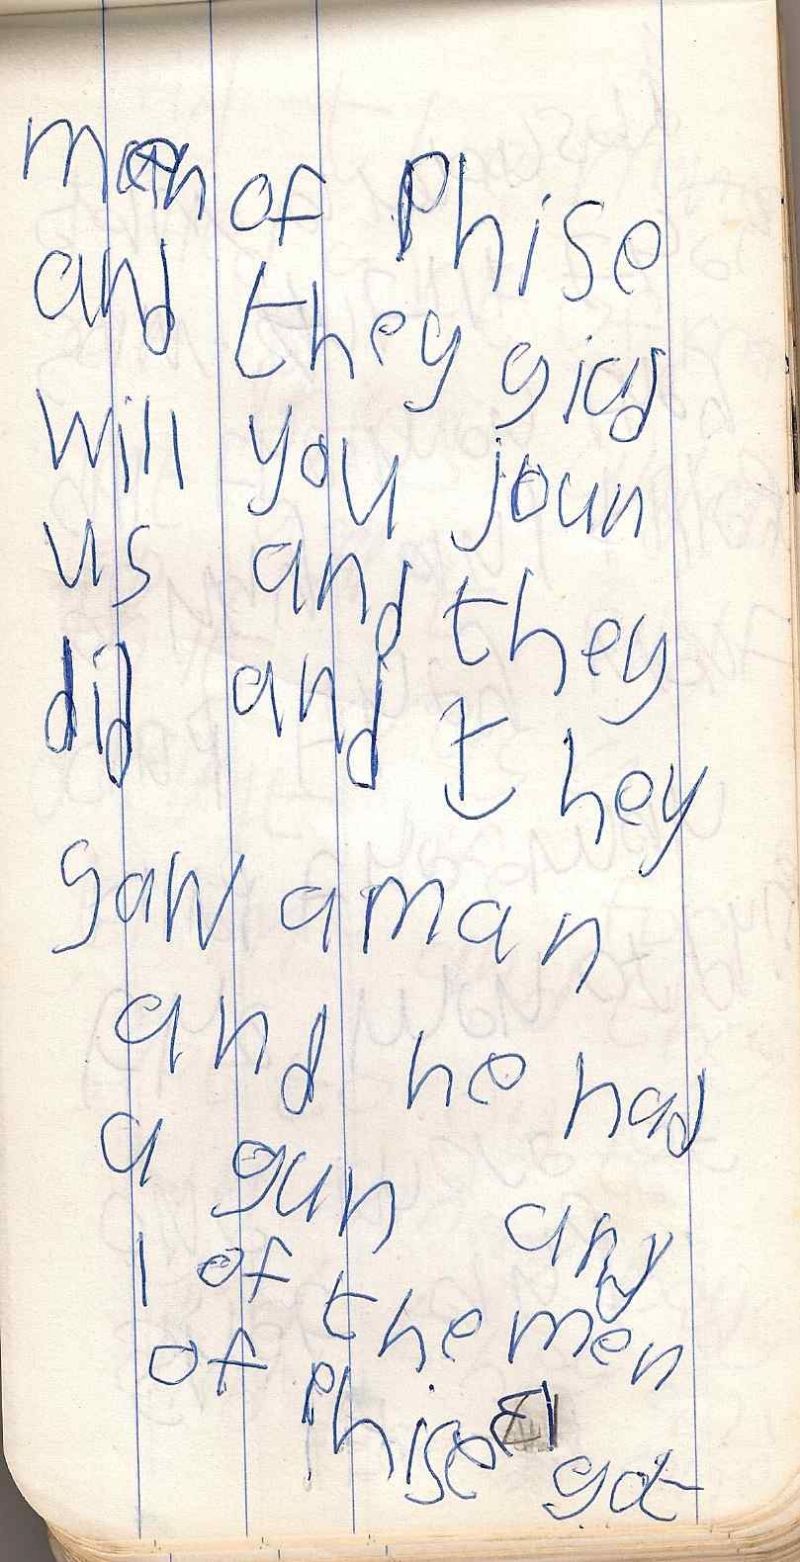 men of Phise
and they giad
will you joun
us and they
did and they
saw a man
and he had
a gun and
1 of the men
of Phise
got